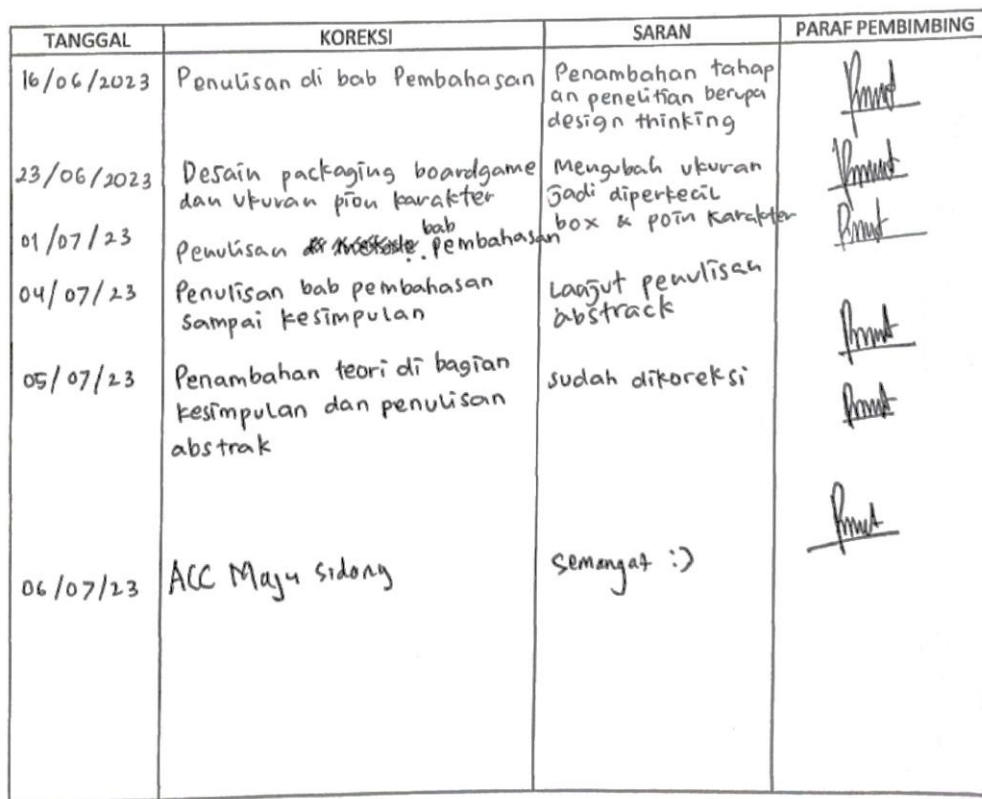 TANGGAL KOREKSI SARAN PARAF PEMBIMBING
16/06/2023 Penulisan di bab Pembahasan Penambahan tahap
an penelitian berupa
design thinking
23/06/2023 Desain packaging boardgame Mengubah ukuran
dan ukuran pion karakter jadi diperkecil
box & poin karakter
01/07/23 Penulisan bab pembahasan
04/07/23 Penulisan bab pembahasan Lanjut penulisan
sampai kesimpulan abstrack
05/07/23 Penambahan teori di bagian sudah dikoreksi
kesimpulan dan penulisan
abstrak
06/07/23 ACC Maju sidang semangat :)